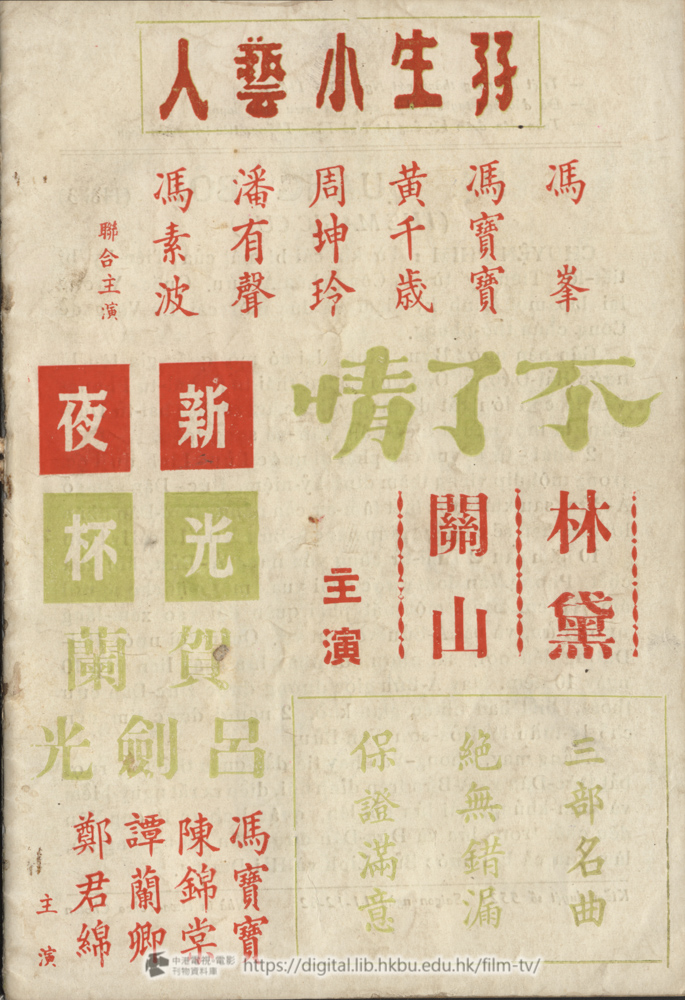 孖生小藝人
馮峯
馮寶寶
黃千歲
周坤玲
潘有聲
馮素波
聯合主演
不了情
林黛
關山
主演
三部名曲
絕無錯漏
保證滿意
新夜
光杯
賀蘭
呂劍光
馮寶寶
陳錦棠
譚蘭卿
鄭君綿
主演
中港電視·電影
刊物資料庫
https://digital.lib.hkbu.edu.hk/film-tv/